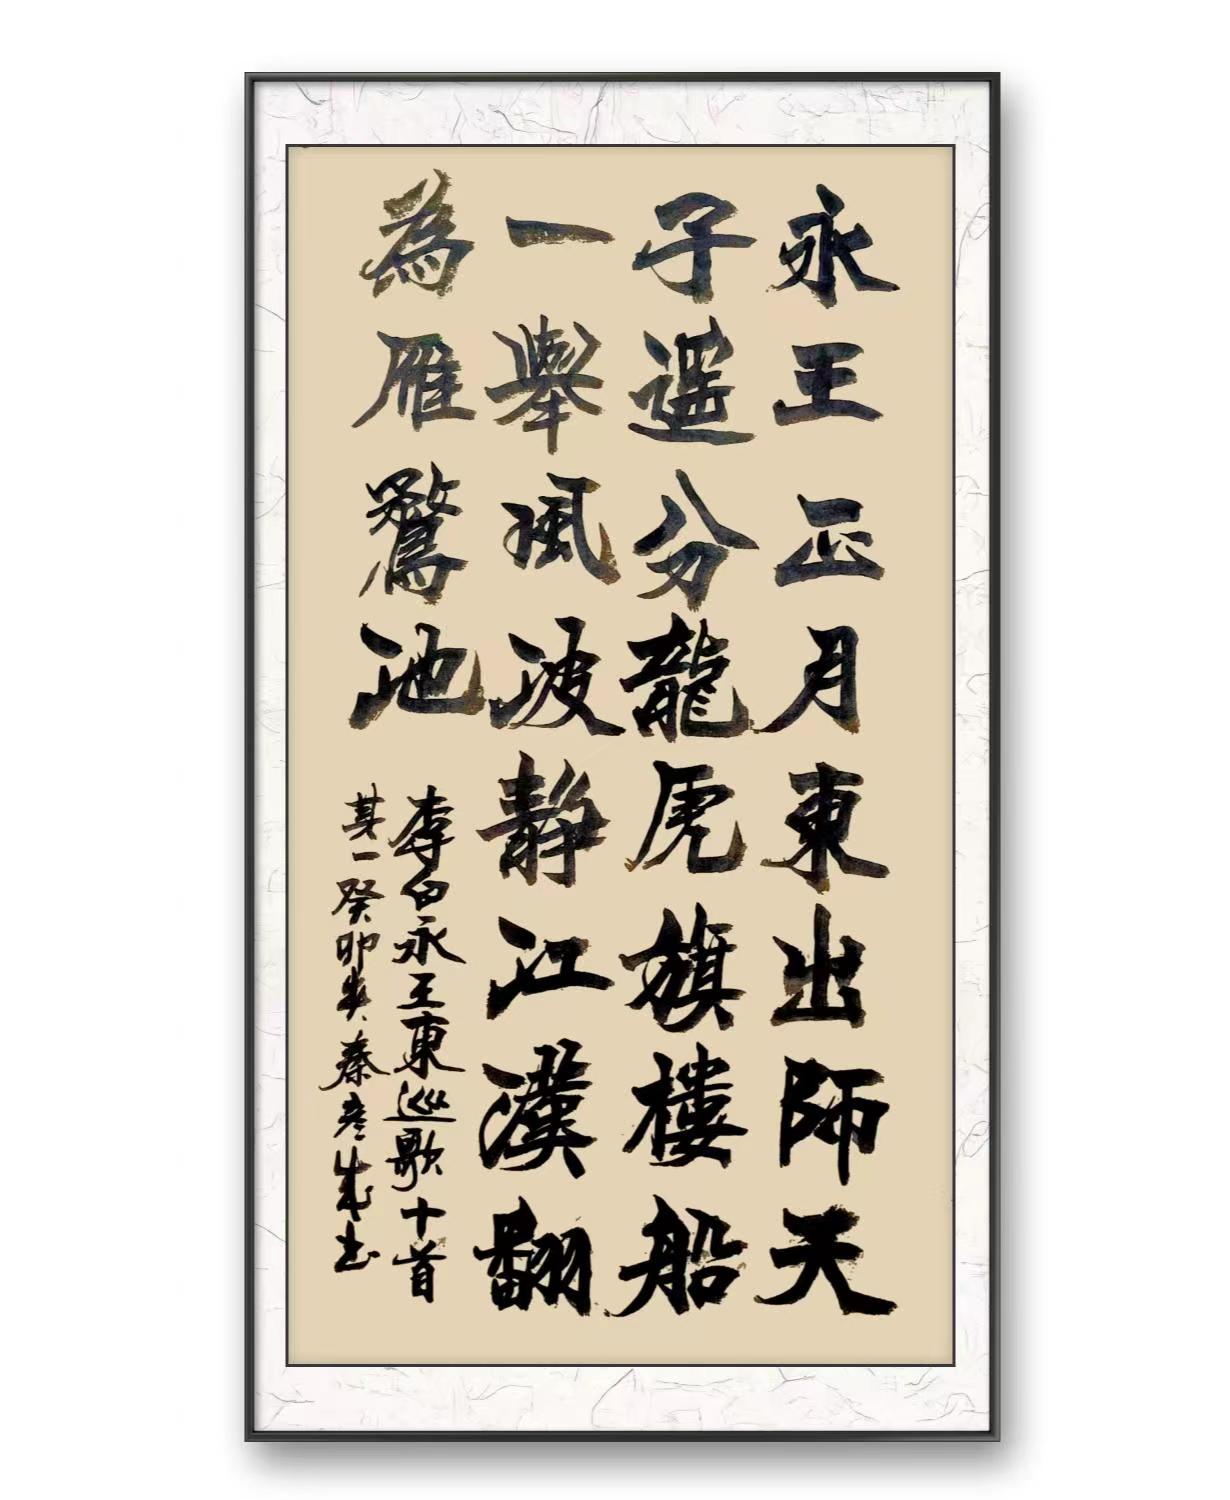 永王正月東出師天
子遥分龍虎旗樓船
一舉風波靜江漢翻
為雁鶩池
李白永王東巡歌十首
其一癸卯冬秦彦生书